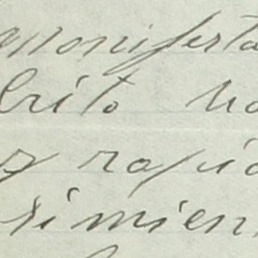 manifesta
brito ha
y rapid
rimien